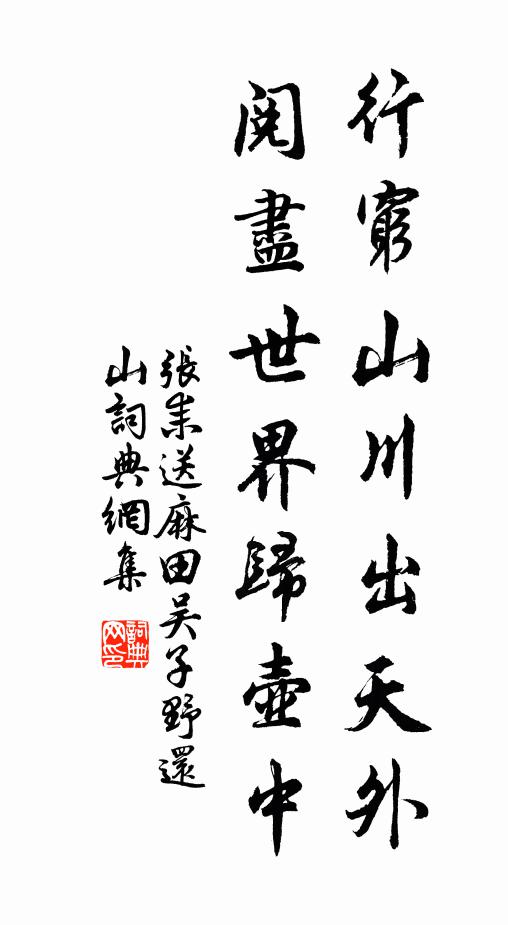 行窮山川出天外
閱盡世界歸壺中
張耒送麻田吳子野還
山詞典網集
詞典
网印